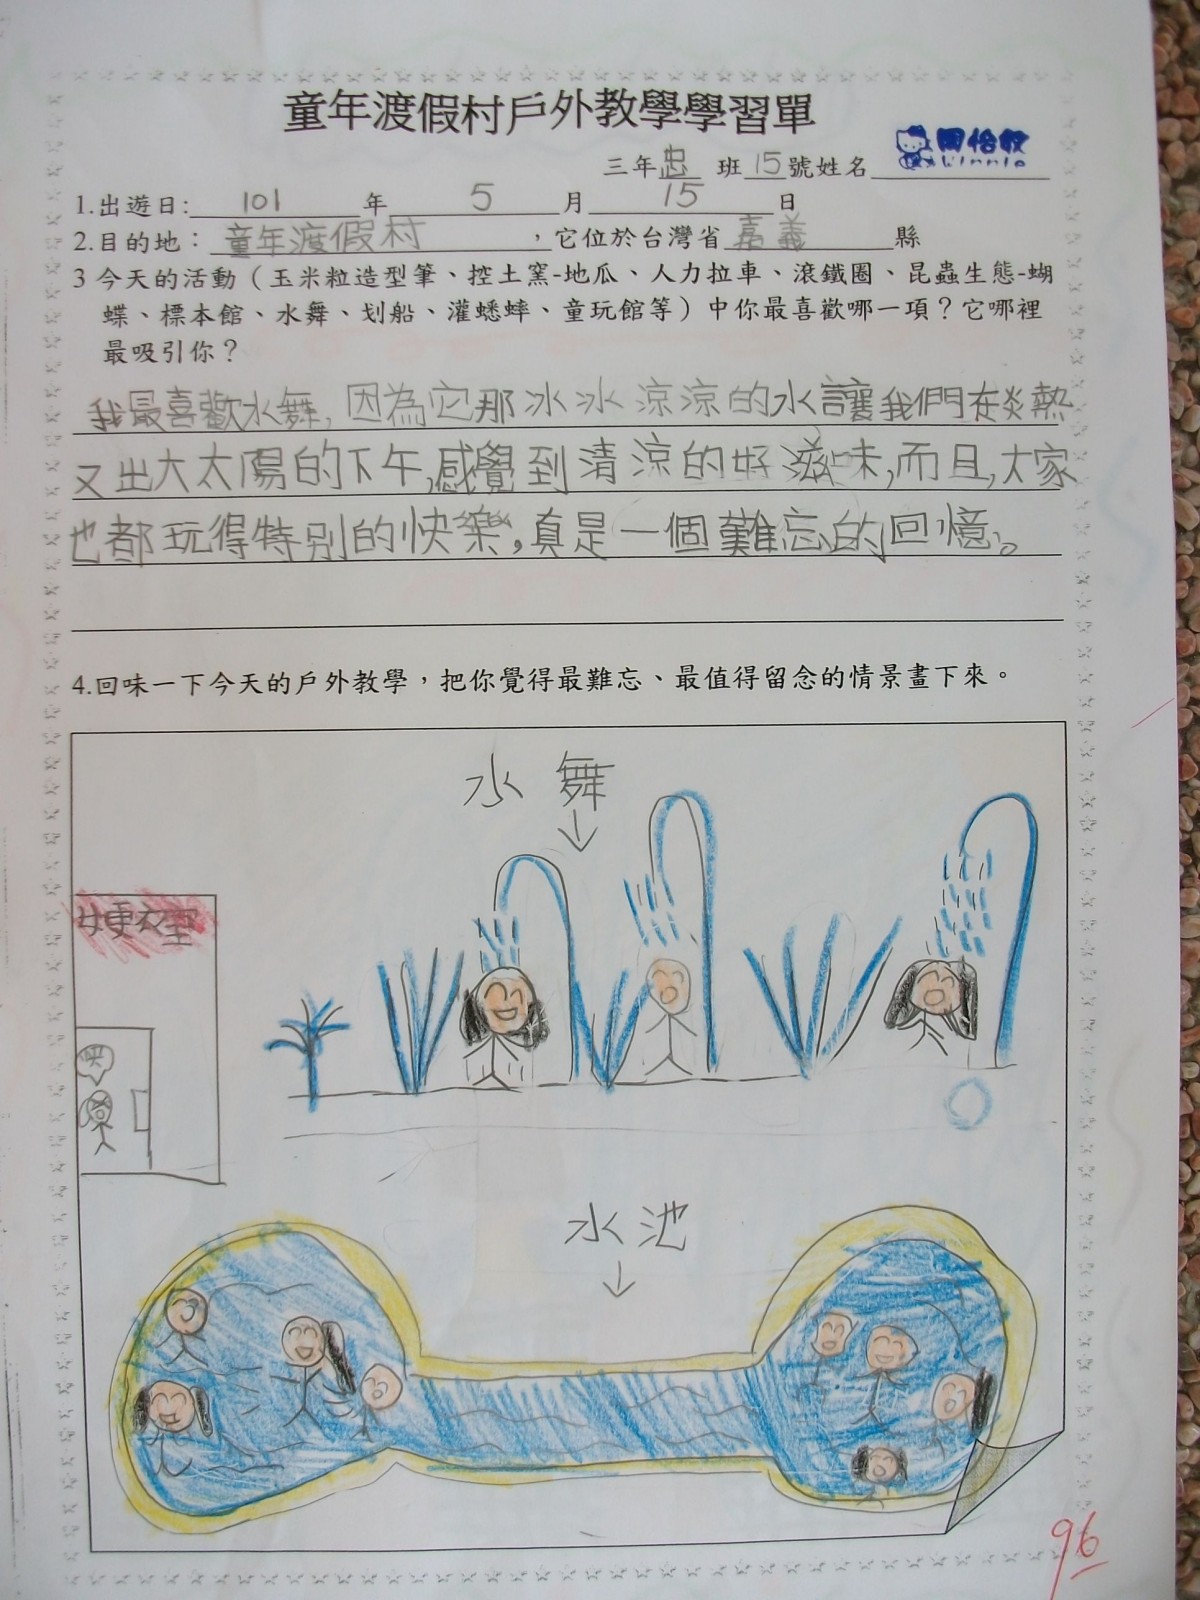 童年渡假村戶外教學學習單
三年忠 班15號姓名 周怡
Winnie
1.出遊日: 101 年 5 月 15 日
2.目的地： 童年渡假村 ，它位於台灣省 嘉義 縣
3 今天的活動（玉米粒造型筆、控土窯-地瓜、人力拉車、滾鐵圈、昆蟲生態-蝴
蝶、標本館、水舞、划船、灌蟋蟀、童玩館等）中你最喜歡哪一項？它哪裡
最吸引你？
我最喜歡水舞，因為它那冰冰涼涼的水讓我們在炎熱
又出大太陽的下午，感覺到清涼的好滋味，而且，大家
也都玩得特別的快樂，真是一個難忘的回憶。
4.回味一下今天的戶外教學，把你覺得最難忘、最值得留念的情景畫下來。
水舞
女更衣室
水池
96